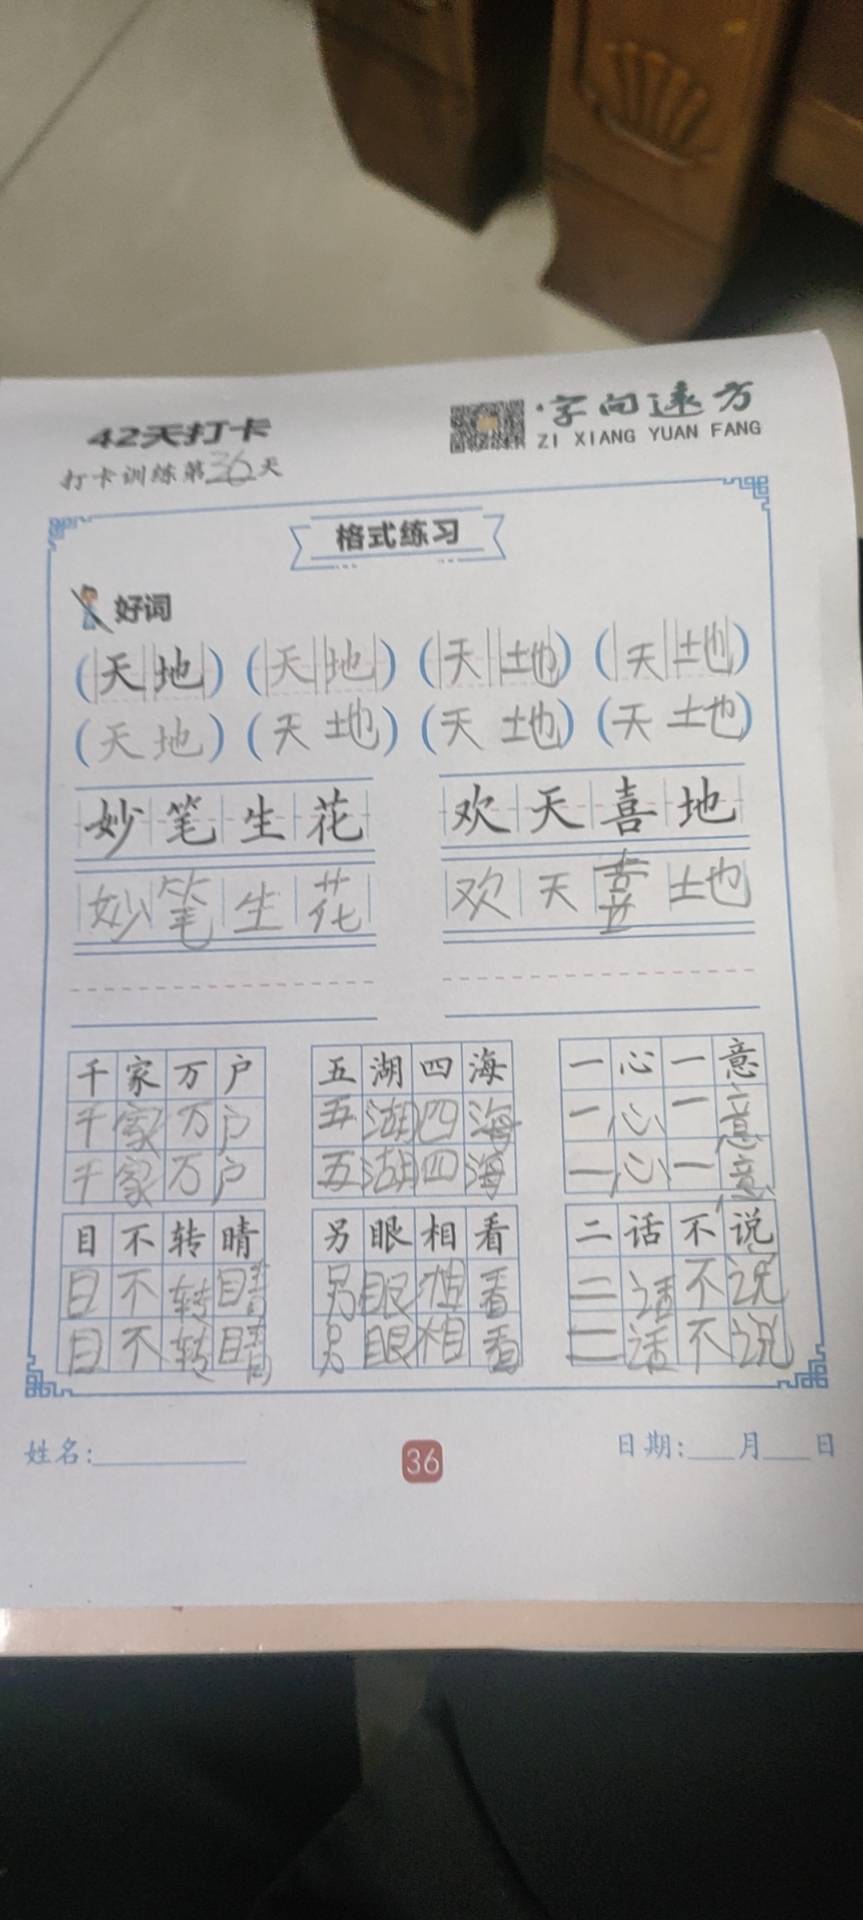 42天打卡
字向远方
ZI XIANG YUAN FANG
打卡训练第36天
格式练习
好词
(天地) (天地) (天地) (天地)
(天地) (天地) (天地) (天地)
妙笔生花 欢天喜地
妙笔生花 欢天喜地
千家万户 五湖四海 一心一意
千家万户 五湖四海 一心一意
千家万户 五湖四海 一心一意
目不转睛 另眼相看 二话不说
目不转睛 另眼相看 二话不说
目不转睛 另眼相看 二话不说
姓名:
36
日期: 月 日